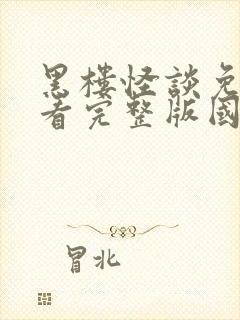 黑樓怪談免
看完整版國
冒北